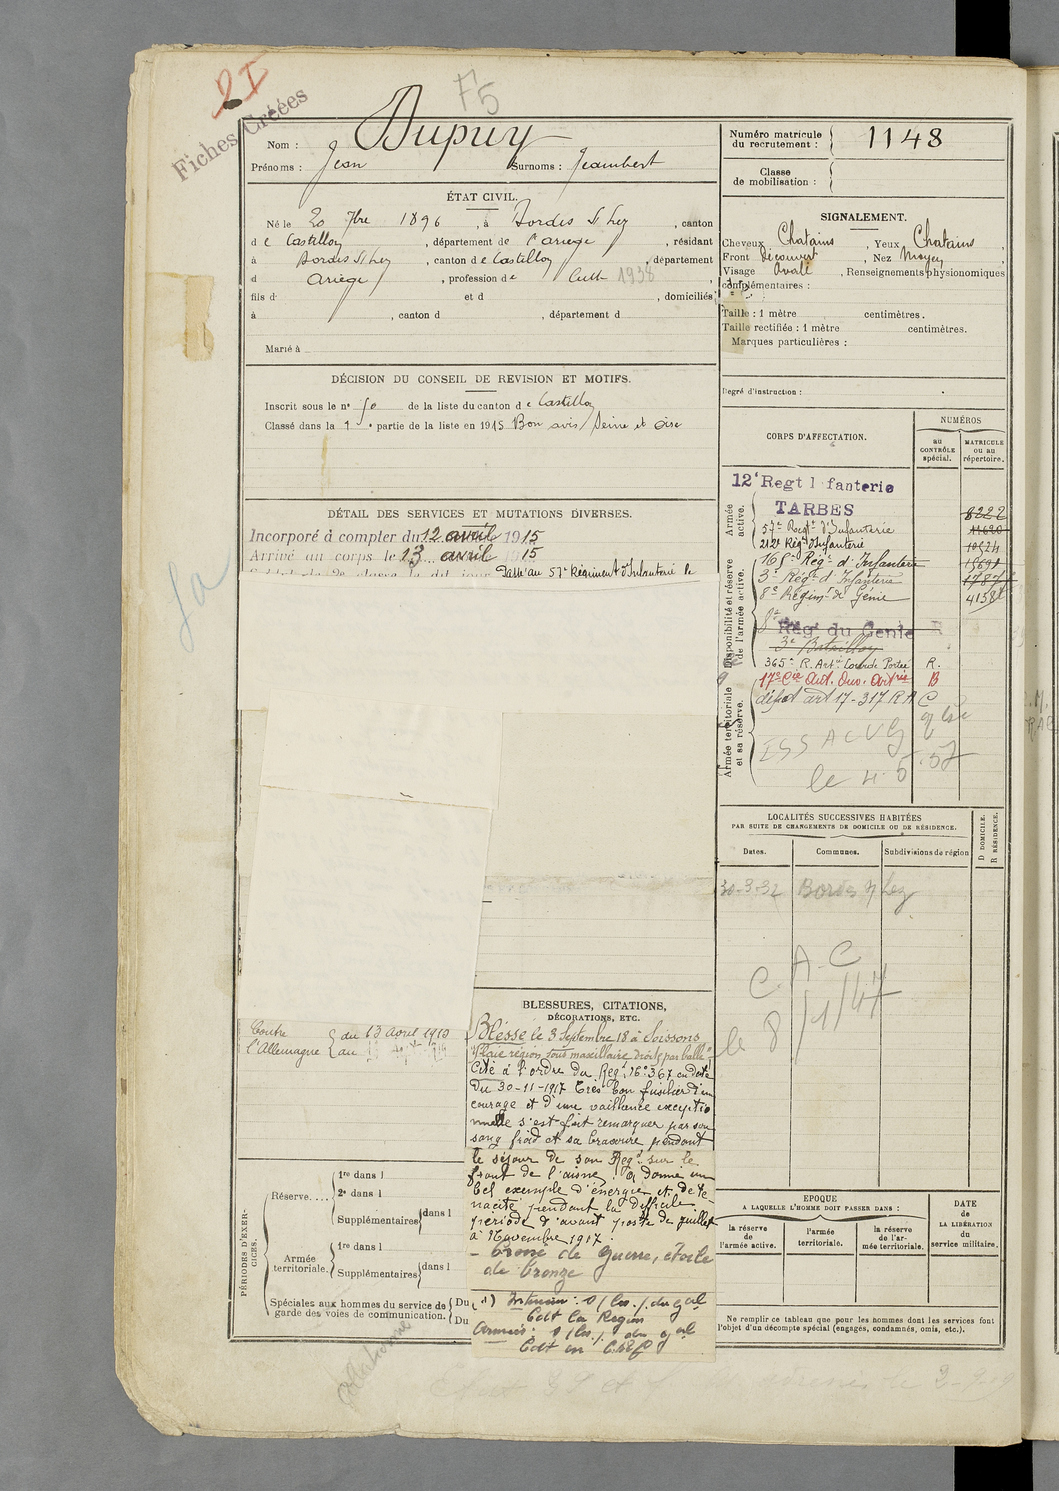 2I
Fiches Créées
F5
Nom : Dupuy
Prénoms : Jean Surnoms : Jeambert
ÉTAT CIVIL.
Né le 20 7bre 1896, à Bordes S/ Lez, canton
de Castillon, département de l'ariege, résidant
à Bordes S/ Lez, canton de Castillon, département
d Ariège, profession de Cultr 1938
fils d et d , domiciliés
à , canton d , département d
Marié à
DÉCISION DU CONSEIL DE REVISION ET MOTIFS.
Inscrit sous le n° 50 de la liste du canton de Castillon
Classé dans la 1e partie de la liste en 1915 Bon avis/ Seine et Oise
DÉTAIL DES SERVICES ET MUTATIONS DIVERSES.
Incorporé à compter du 12 avril 1915
Arrivé au corps le 13 avril 1915
Passé au 57e Régiment d'Infanterie le
Contre l'Allemagne
du 13 Avril 1915
au
BLESSURES, CITATIONS,
DÉCORATIONS, ETC.
Blessé le 3 Septembre 18 à Soissons
Plaie région sous maxillaire droite par balle
Cité à l'ordre du Regt N° 367 en date
du 30-11-1917 Très bon fusilier d'un
courage et d'une vaillance exceptio
nnelle s'est fait remarquer par son
sang froid et sa bravoure pendant
le séjour de son Regt sur le
front de l'aisne a donné un
bel exemple d'énergie et de té
nacité pendant la difficile
période d'avant poste de Juillet
à Novembre 1917.
- Croix de Guerre, étoile
de bronze
Cdt la Région
Cdt en Chef
PÉRIODES D'EXERCICES.
Réserve....
1re dans l
2e dans l
Supplémentaires dans l
Armée territoriale.
1re dans l
Supplémentaires dans l
Spéciales aux hommes du service de garde des voies de communication.
Du
Du
Numéro matricule du recrutement : 1148
Classe de mobilisation :
SIGNALEMENT.
Cheveux Chatains, Yeux Chatains,
Front découvert, Nez Moyen,
Visage Ovale, Renseignements physionomiques
complémentaires :
Taille : 1 mètre centimètres.
Taille rectifiée : 1 mètre centimètres.
Marques particulières :
Degré d'instruction :
CORPS D'AFFECTATION.
NUMÉROS
au CONTRÔLE spécial.
MATRICULE ou au répertoire.
Armée active.
Disponibilité et réserve de l'armée active.
Armée territoriale et sa réserve.
12e Regt Infanterie
TARBES 8222
57e Regt d'Infanterie 11690
212e Régt d'Infanterie 10524
165e Régt d'Infanterie 15691
3e Régt d'Infanterie 1787
8e Régimt de Génie 4138
8e Rég du Genie R
3e Bataillon
365e R. Artie Lourde Portée R.
17e Cie Aut. Ouv. Artrie B
dépot art 17 - 317 RA C
le 4.5.57
LOCALITÉS SUCCESSIVES HABITÉES
PAR SUITE DE CHANGEMENTS DE DOMICILE OU DE RÉSIDENCE.
Dates.
Communes.
Subdivisions de région
D DOMICILE.
R RÉSIDENCE.
30-3-32 Bordes s/ Lez
C A C
le 8/1/47
EPOQUE
A LAQUELLE L'HOMME DOIT PASSER DANS :
la réserve de l'armée active.
l'armée territoriale.
la réserve de l'armée territoriale.
DATE de LA LIBÉRATION du service militaire.
Ne remplir ce tableau que pour les hommes dont les services font
l'objet d'un décompte spécial (engagés, condamnés, omis, etc.).